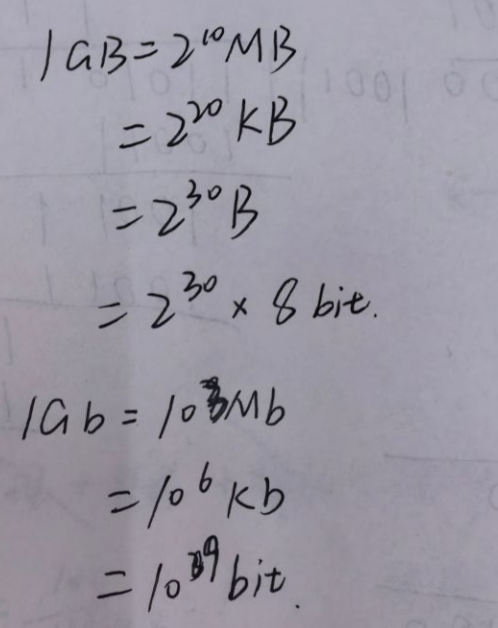 1GB = 2¹⁰MB
= 2²⁰ KB
= 2³⁰ B
= 2³⁰ × 8 bit.
1Gb = 10³Mb
= 10⁶ Kb
= 10⁹ bit.